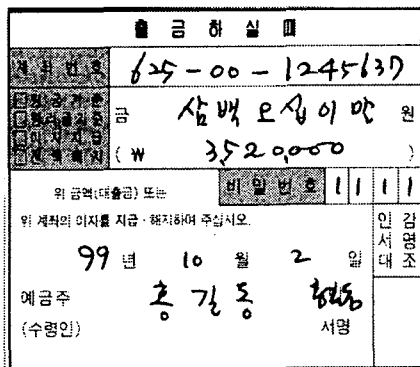 출 금 하 실 때
계좌번호 625-00-1245637
금 삼백오십이만 원
(₩ 3,520,000 )
위 금액(대출금) 또는 비밀번호 1 1 1 1
위 계좌의 이자를 지급·해지하여 주십시오.
인감
서명
대조
99 년 10 월 2 일
예금주 홍길동
(수령인) 서명